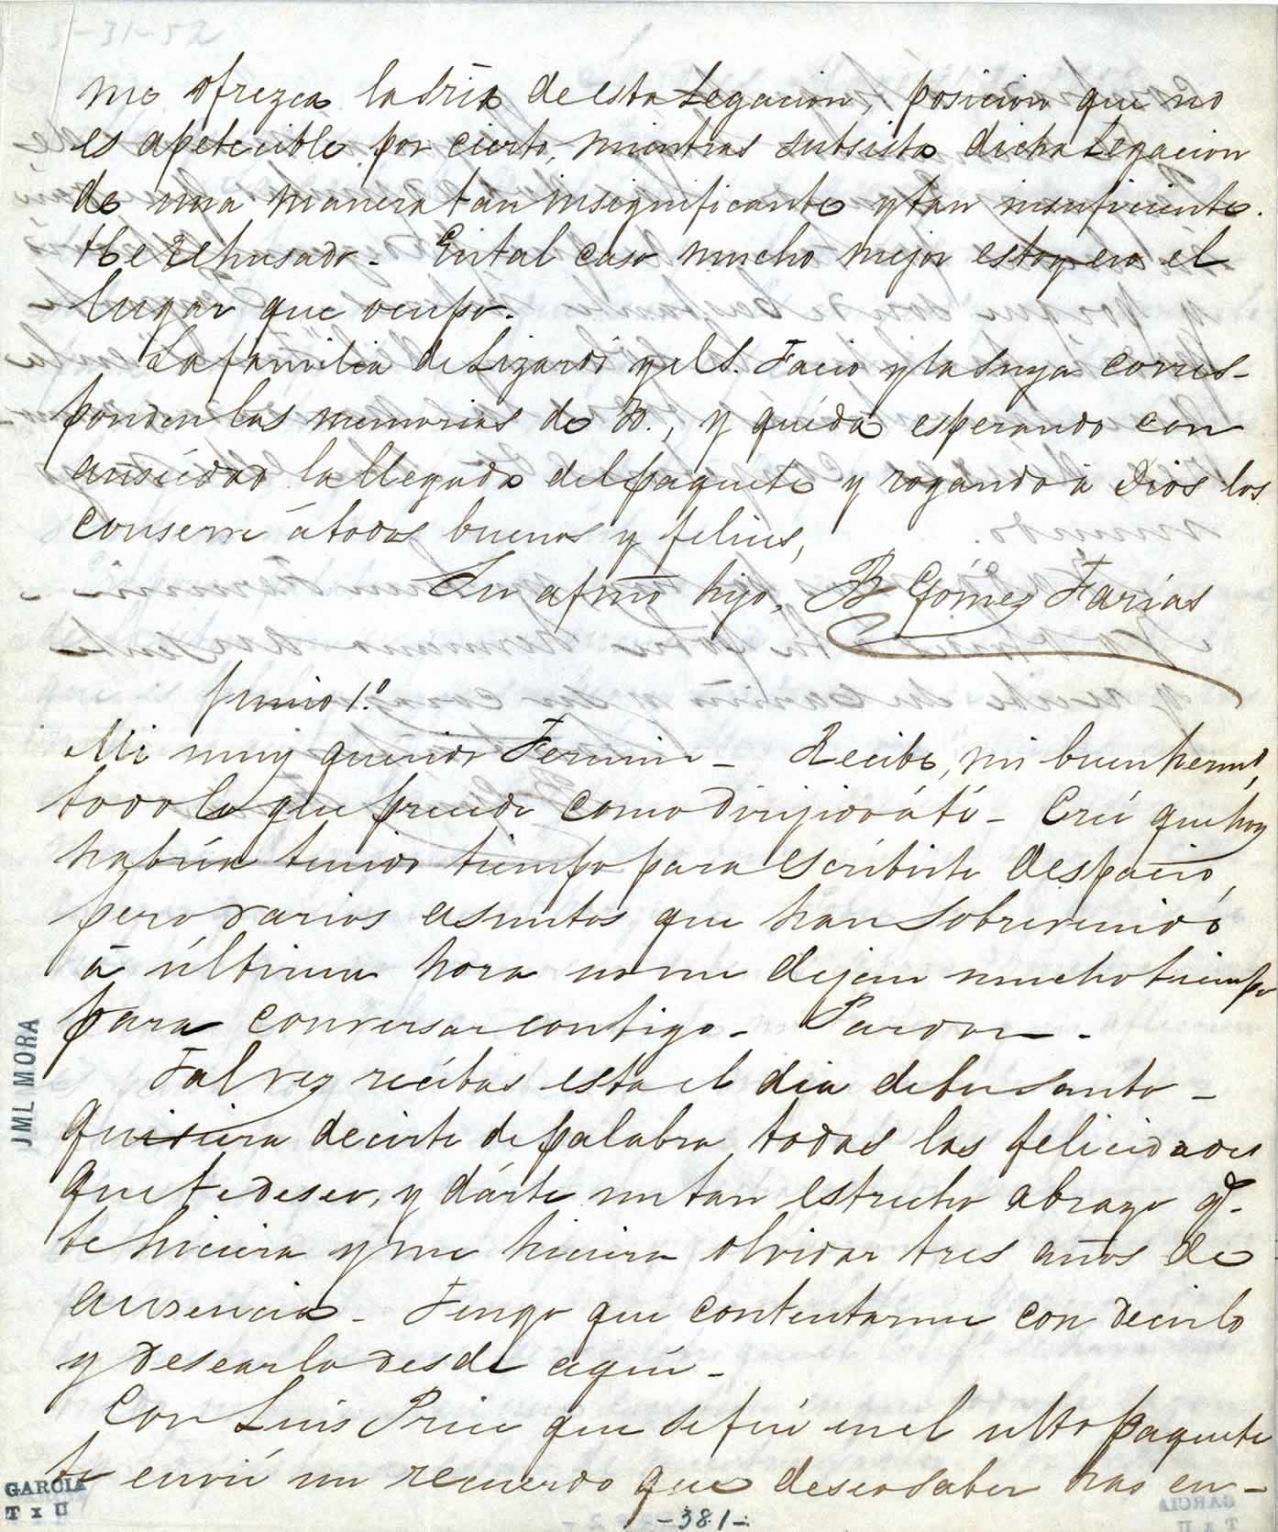 5-31-52
me ofrezca la Sría de esta Legacion, posicion que no
es apetecible por cierto, mientras subsista dicha Legacion
de una manera tan insignificante y tan insuficiente.
He rehusado. En tal caso mucho mejor estoy en el
lugar que ocupo.
La familia de Lizardi y el S. Facio y la suya corres-
ponden las memorias de V., y queda esperando con
ansiedad la llegada del paquete y rogando á Dios los
conserve á todos buenos y felices,
Su afmo hijo, B Gómez Farías
Junio 1º
Mi muy querido Fermin - Recibe, mi buen hermo,
todo lo que precede como dirijido á tí - Creí que hoy
habria tenido tiempo para escribirte despacio,
pero varios asuntos que han sobrevenido
á última hora no me dejan mucho tiempo
para conversar contigo - Perdon -
Tal vez recibas esta el dia de tu santo -
Quisiera decirte de palabra todas las felicidades
que te deseo, y dárte un tan estrecho abrazo q.
te hiciera y me hiciera olvidar tres años de
ausencia - Tengo que contentarme con decirlo
y desearlo desde aquí -
Con Luis Price que se fué en el ulto paquete
te envié un recuerdo que deseo saber has en-
-381-
JML MORA
GARCIA
T x U